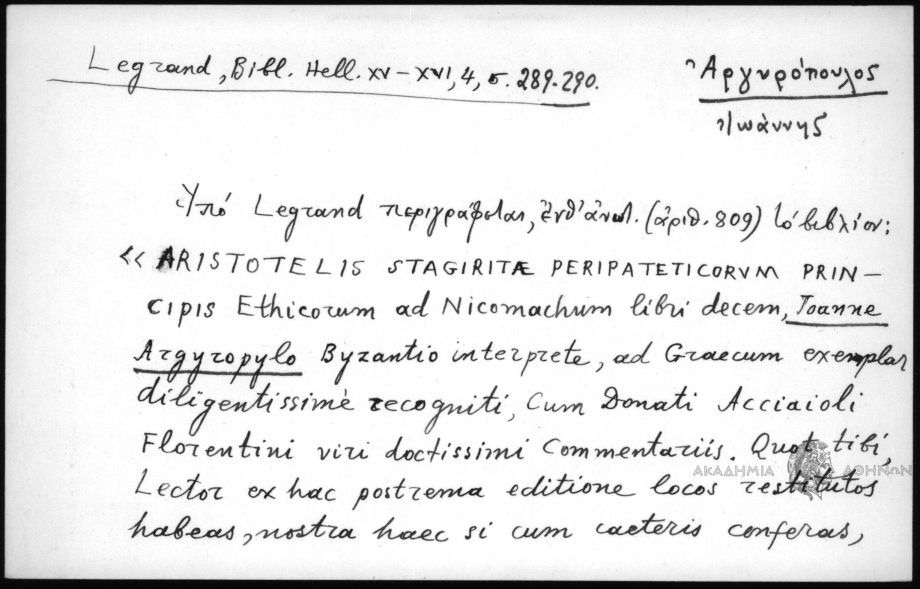 Legrand, Bibl. Hell. XV–XVI, 4, σ. 289-290.
Ἀργυρόπουλος
Ἰωάννης
Ὑπό Legrand περιγράφεται, ἐνθ' ἀνωτ. (ἀριθ. 809) τό βιβλίον:
« ARISTOTELIS STAGIRITÆ PERIPATETICORVM PRIN–
CIPIS Ethicorum ad Nicomachum libri decem, Joanne
Argyropylo Byzantio interprete, ad Graecum exemplar
diligentissimè recogniti, Cum Donati Acciaioli
Florentini viri doctissimi Commentariis. Quot tibi,
ΑΚΑΔΗΜΙΑ ΑΘΗΝΩΝ
Lector ex hac postrema editione locos restitutos
habeas, nostra haec si cum caeteris conferas,